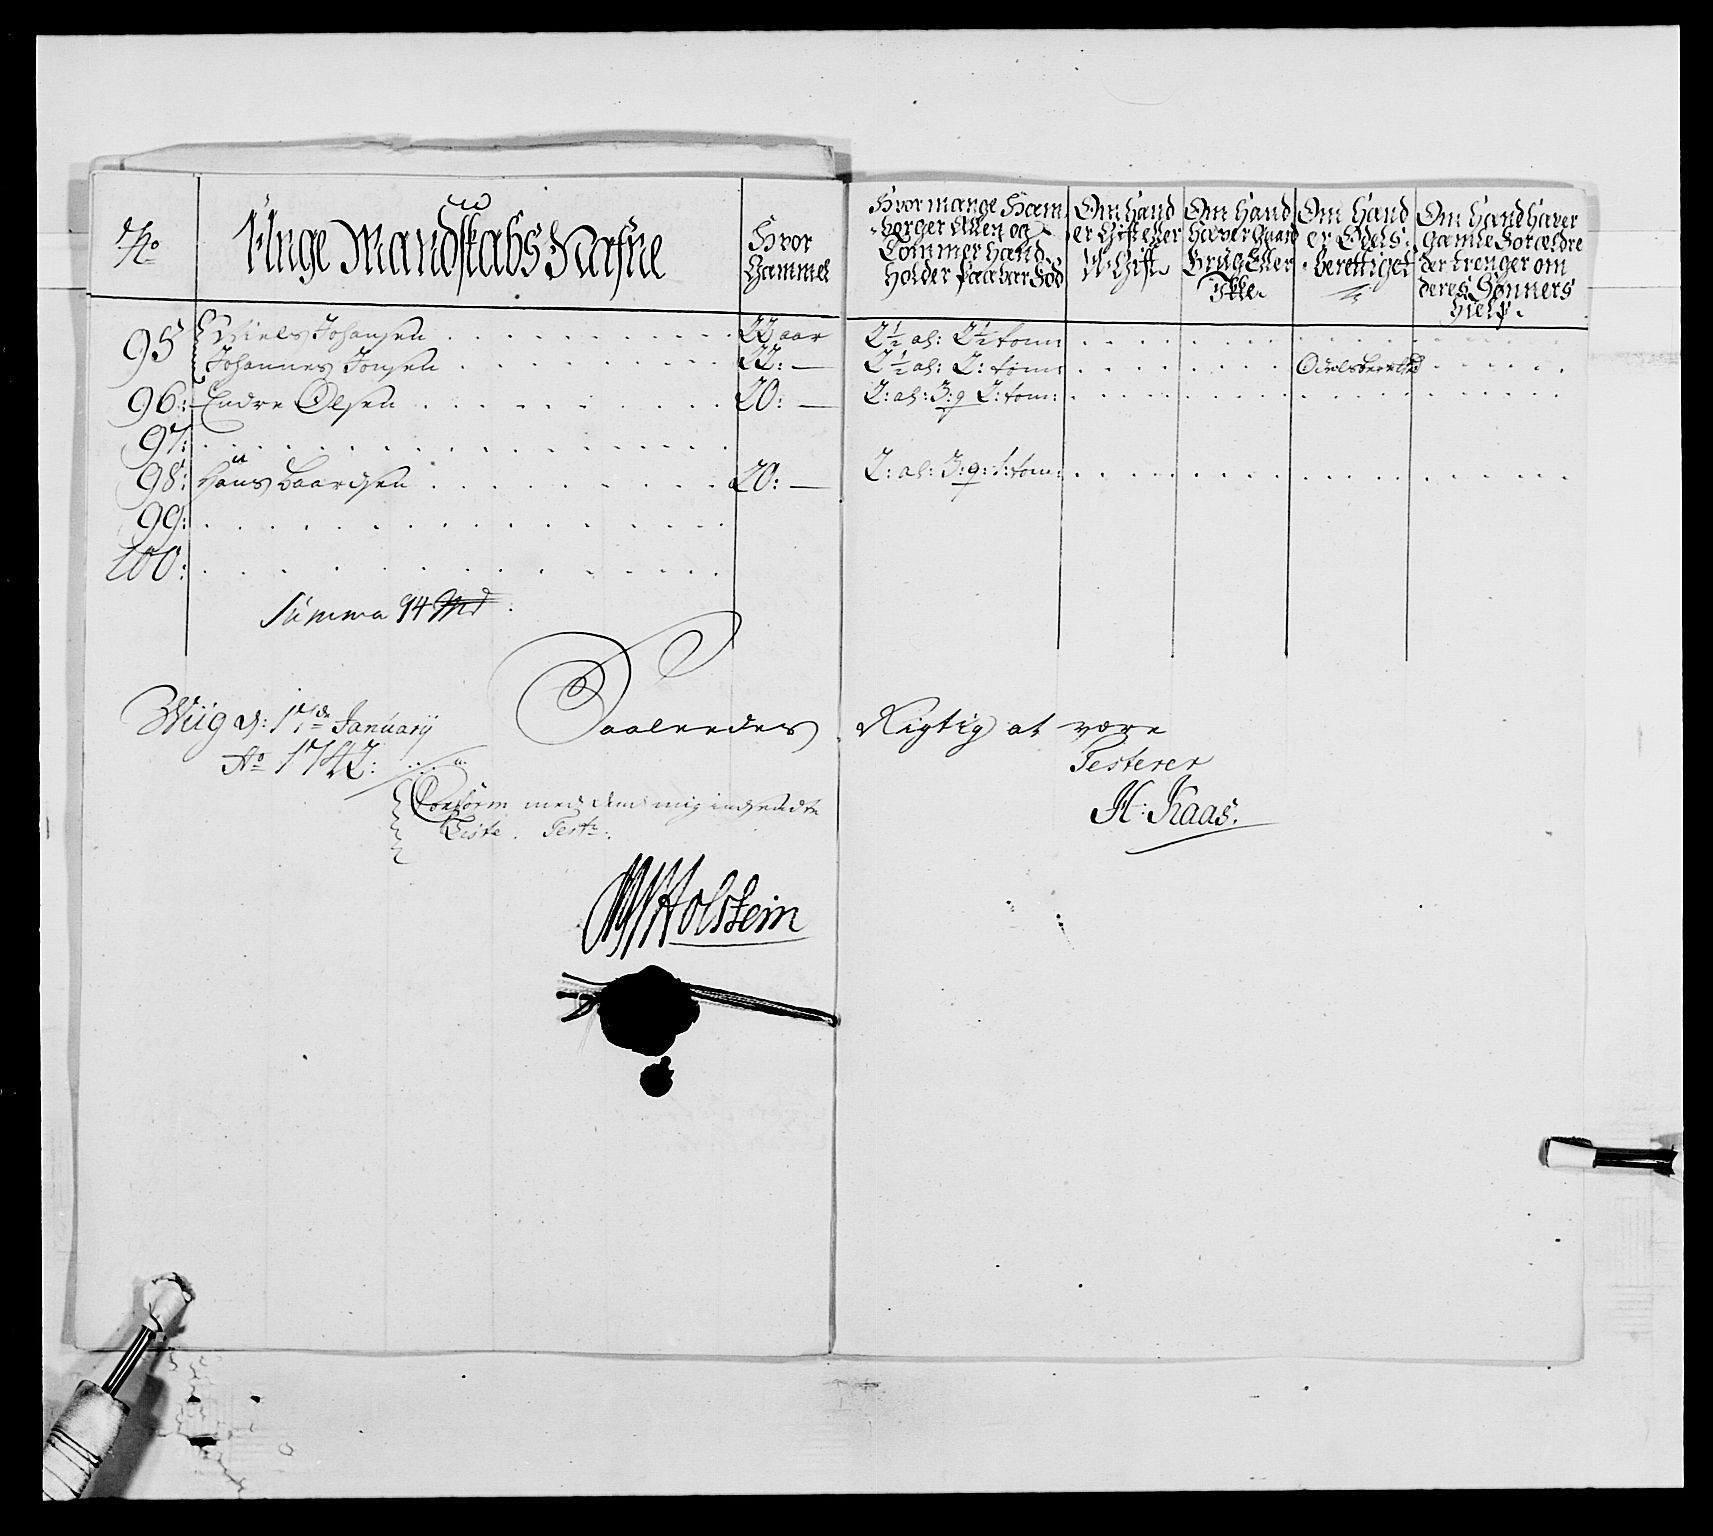 No
Unge Mandskabs Nafne
Hvor
Gammel
Hvor mange Ham-
borger Allen og
Tommer Hand
Holder Paa var Fod
Om Hand
er Gift eller
U-Gift
Om Hand
Haver Gaard
Brug Eller
Ikke
Om Hand
er Odels-
berettiget
Om Hand haver
Gamle Forældre
der trenger om
deres Sønners
Hielp.
95 Niels Johansen 22 aar 2½ al: 2½ tomm
Johannes Jonsen 22: — 2½ al: 2: tomm: Odelsberettiged
96: Endre Olsen 20: — 2: al: 3: q 2: tom:
97:
98: Hans Baardsen 20: — 2: al: 3: q: 1: tom:
99:
100:
Summa 94 Md
Wiig d: 17de January
Ao 1742:
Saaleedes Rigtig at være
Testerer
H: Kaas.
Conform med dend mig indsendte
Liste. Test:
Holstein